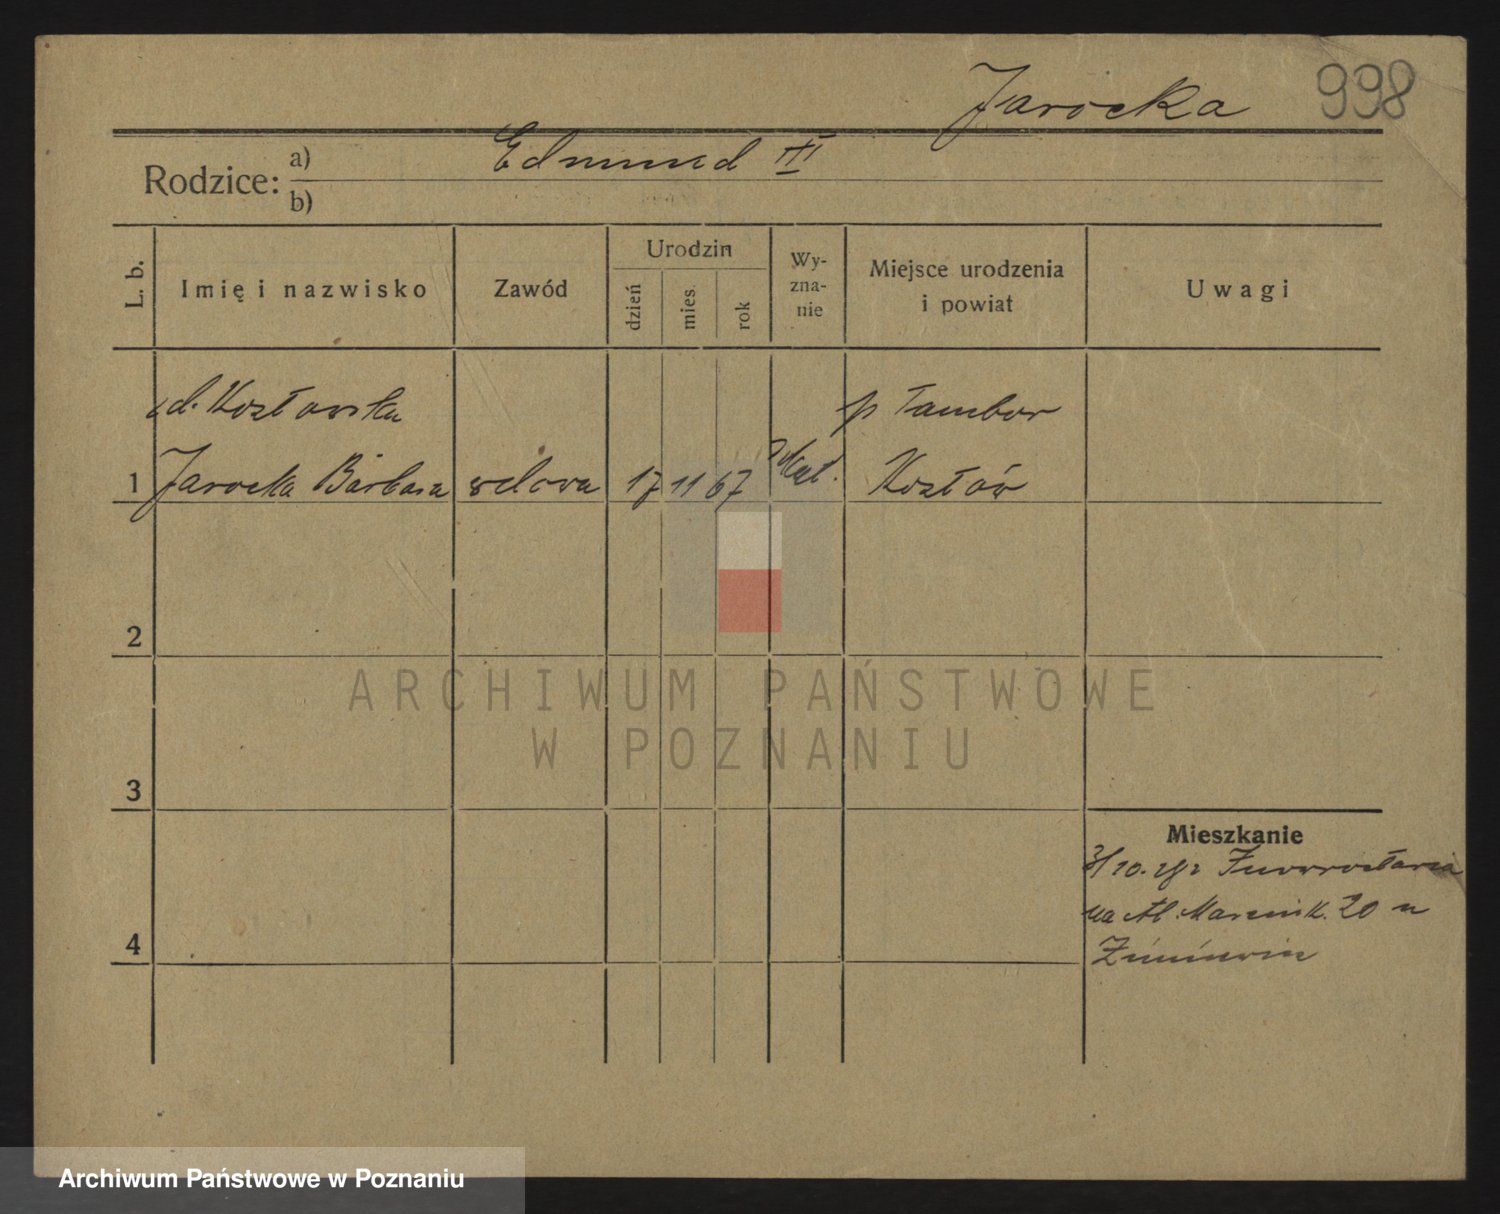 Jarocka 998
Rodzice: a) Edmund III
b)
L. b.
Imię i nazwisko
Zawód
Urodzin
dzień
mies.
rok
Wy-
zna-
nie
Miejsce urodzenia
i powiat
Uwagi
d. Kozłowska p Tambow
1 Jarocka Barbara wdowa 17 11 67 kat. Kozłów
2
3
4
Mieszkanie
3/10. Inowrocława
na Al. Marcink. 20 u
ARCHIWUM PAŃSTWOWE
W POZNANIU
Archiwum Państwowe w Poznaniu